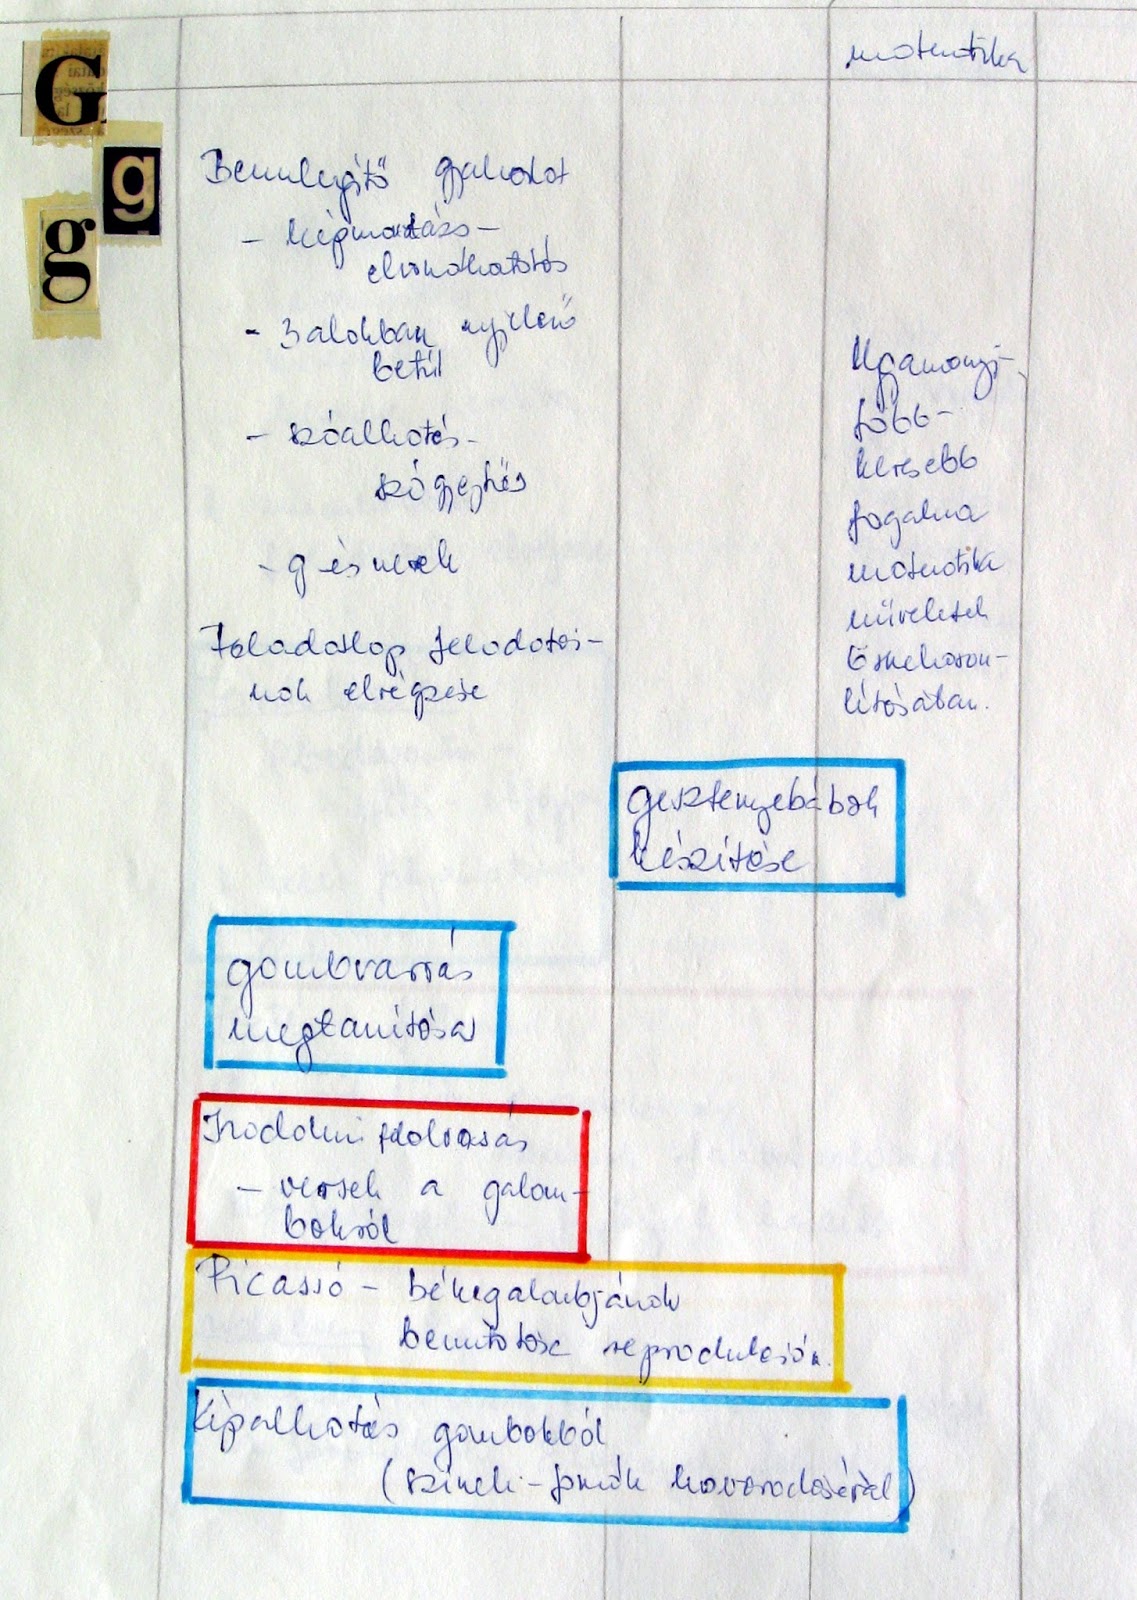 matematika
G
g
g
Bemelegítő gyakorlat
- képmontázs-
elvonatkoztatás
- 3 alakban nyíló
betűl
- szóalkotás-
szógyűjtés
- g és nevek
Feladatlap feladatai-
nak elvégzése
Ugyanannyi-
több-
kevesebb
fogalma
matematika
műveletek
összehason-
lításában.
gesztenyebábok
készítése
gombvarrás
megtanítása
Irodalmi felolvasás
- versek a galam-
bokról
Picassó - békegalambjának
bemutatása reprodukción.
Képalkotás gombokból
(színek-formák kavarodásával)